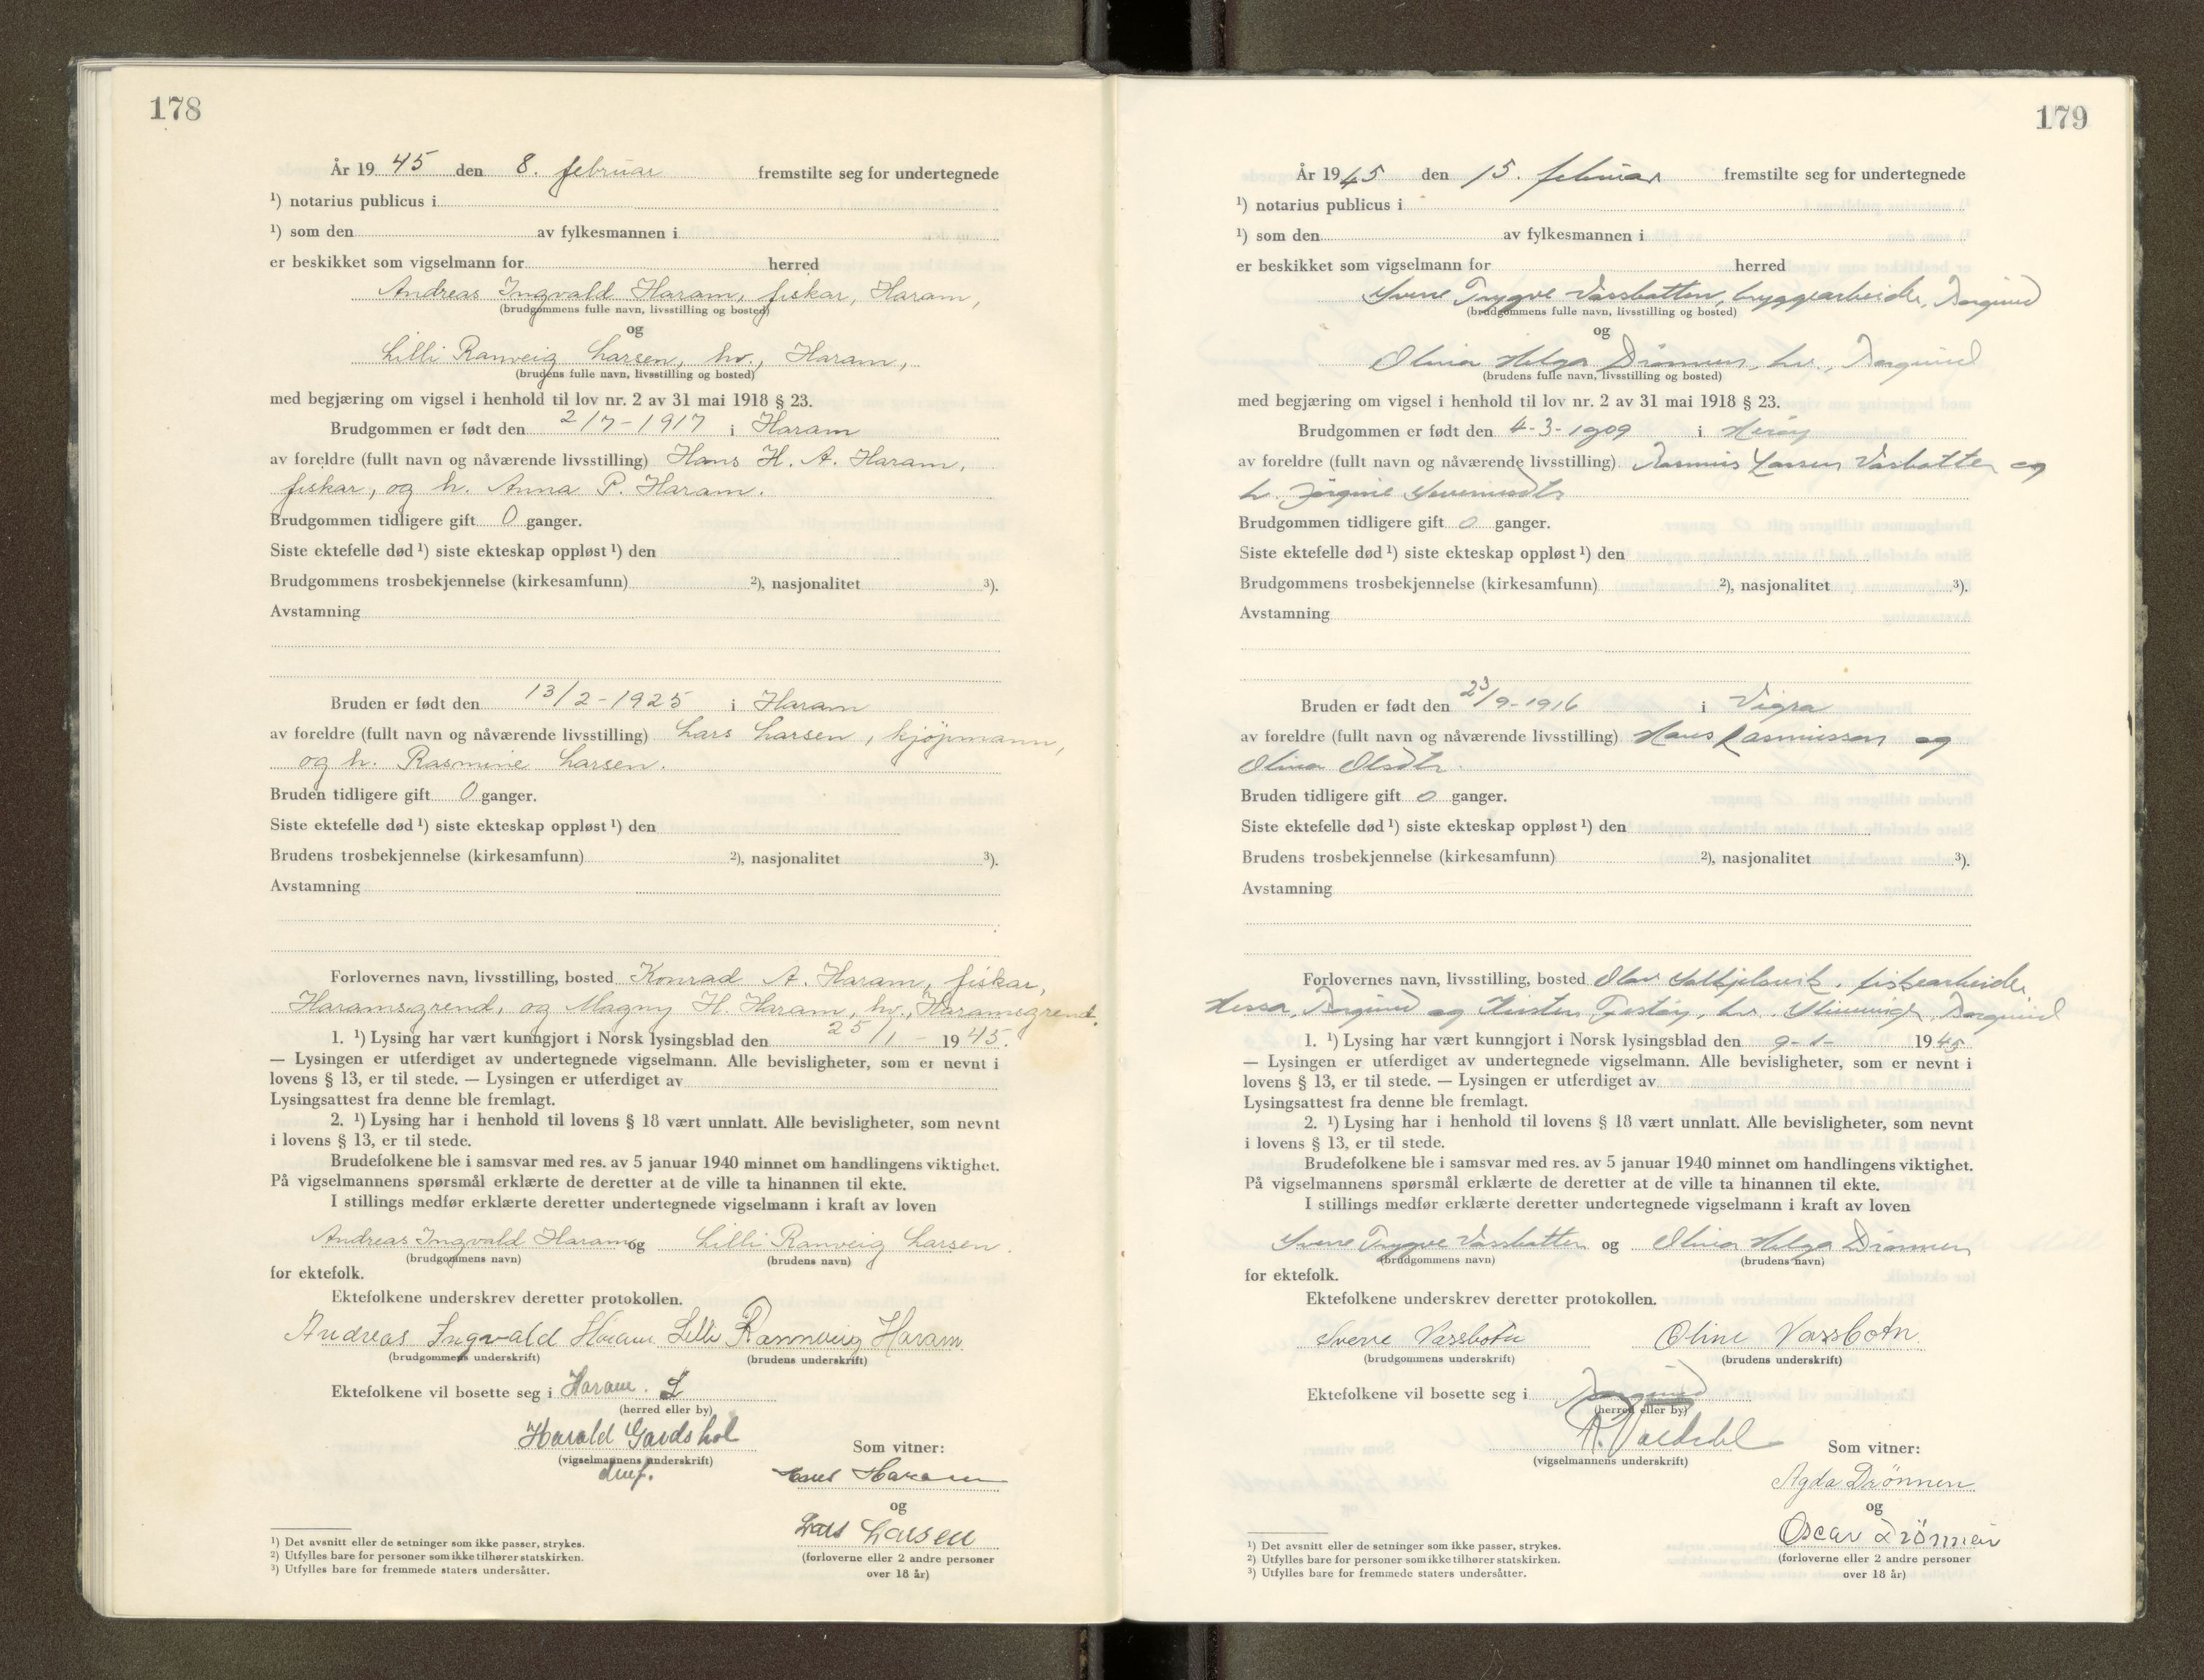 178
År 1945 den 8. februar fremstilte seg for undertegnede
¹) notarius publicus i
¹) som den av fylkesmannen i
er beskikket som vigselmann for herred
Andreas Ingvald Haram, fiskar, Haram,
(brudgommens fulle navn, livsstilling og bosted)
og
Lilli Ranveig Larsen, hv., Haram,
(brudens fulle navn, livsstilling og bosted)
med begjæring om vigsel i henhold til lov nr. 2 av 31 mai 1918 § 23.
Brudgommen er født den 2/7-1917 i Haram
av foreldre (fullt navn og nåværende livsstilling) Hans H. A. Haram,
fiskar, og h. Anna P. Haram.
Brudgommen tidligere gift 0 ganger.
Siste ektefelle død ¹) siste ekteskap oppløst ¹) den
Brudgommens trosbekjennelse (kirkesamfunn) ²), nasjonalitet ³).
Avstamning
Bruden er født den 13/2-1925 i Haram
av foreldre (fullt navn og nåværende livsstilling) Lars Larsen, kjøpmann,
og h. Rasmine Larsen.
Bruden tidligere gift 0 ganger.
Siste ektefelle død ¹) siste ekteskap oppløst ¹) den
Brudens trosbekjennelse (kirkesamfunn) ²), nasjonalitet ³).
Avstamning
Forlovernes navn, livsstilling, bosted Konrad A. Haram, fiskar,
Haramsgrend, og Magny H. Haram, hv., Haramsgrend.
1. ¹) Lysing har vært kunngjort i Norsk lysingsblad den 25/1 - 1945.
— Lysingen er utferdiget av undertegnede vigselmann. Alle bevisligheter, som er nevnt i
lovens § 13, er til stede. — Lysingen er utferdiget av
Lysingsattest fra denne ble fremlagt.
2. ¹) Lysing har i henhold til lovens § 18 vært unnlatt. Alle bevisligheter, som nevnt
i lovens § 13, er til stede.
Brudefolkene ble i samsvar med res. av 5 januar 1940 minnet om handlingens viktighet.
På vigselmannens spørsmål erklærte de deretter at de ville ta hinannen til ekte.
I stillings medfør erklærte deretter undertegnede vigselmann i kraft av loven
Andreas Ingvald Haram og Lilli Ranveig Larsen.
(brudgommens navn) (brudens navn)
for ektefolk.
Ektefolkene underskrev deretter protokollen.
Andreas Ingvald Haram Lilli Rannveig Haram
(brudgommens underskrift) (brudens underskrift)
Ektefolkene vil bosette seg i Haram. L
(herred eller by)
Harald Gardshol
(vigselmannens underskrift)
dmf.
Som vitner:
Haram
og
Lars Larsen
(forloverne eller 2 andre personer
over 18 år)
¹) Det avsnitt eller de setninger som ikke passer, strykes.
²) Utfylles bare for personer som ikke tilhører statskirken.
³) Utfylles bare for fremmede staters undersåtter.
179
År 1945 den 15. februar fremstilte seg for undertegnede
¹) notarius publicus i
¹) som den av fylkesmannen i
er beskikket som vigselmann for herred
Sverre Trygve Vassbotten, bryggearbeider, Borgund
(brudgommens fulle navn, livsstilling og bosted)
og
Olina Helga Drønnen, hv., Borgund
(brudens fulle navn, livsstilling og bosted)
med begjæring om vigsel i henhold til lov nr. 2 av 31 mai 1918 § 23.
Brudgommen er født den 4-3-1909 i Herøy
av foreldre (fullt navn og nåværende livsstilling) Rasmus Larsen Vasbotten og
h. Jørgine Severinsdtr
Brudgommen tidligere gift 0 ganger.
Siste ektefelle død ¹) siste ekteskap oppløst ¹) den
Brudgommens trosbekjennelse (kirkesamfunn) ²), nasjonalitet ³).
Avstamning
Bruden er født den 23/9-1916 i Vigra
av foreldre (fullt navn og nåværende livsstilling) Hans Rasmussen og
Olina Olsdtr.
Bruden tidligere gift 0 ganger.
Siste ektefelle død ¹) siste ekteskap oppløst ¹) den
Brudens trosbekjennelse (kirkesamfunn) ²), nasjonalitet ³).
Avstamning
Forlovernes navn, livsstilling, bosted Olav fiskearbeider
Hessa, Borgund og Kirsten Festøy, hv. Borgund
1. ¹) Lysing har vært kunngjort i Norsk lysingsblad den 9-1- 1945
— Lysingen er utferdiget av undertegnede vigselmann. Alle bevisligheter, som er nevnt i
lovens § 13, er til stede. — Lysingen er utferdiget av
Lysingsattest fra denne ble fremlagt.
2. ¹) Lysing har i henhold til lovens § 18 vært unnlatt. Alle bevisligheter, som nevnt
i lovens § 13, er til stede.
Brudefolkene ble i samsvar med res. av 5 januar 1940 minnet om handlingens viktighet.
På vigselmannens spørsmål erklærte de deretter at de ville ta hinannen til ekte.
I stillings medfør erklærte deretter undertegnede vigselmann i kraft av loven
Sverre Trygve Vassbotten og Olina Helga Drønnen
(brudgommens navn) (brudens navn)
for ektefolk.
Ektefolkene underskrev deretter protokollen.
Sverre Vassbotn Oline Vassbotn.
(brudgommens underskrift) (brudens underskrift)
Ektefolkene vil bosette seg i Borgund
(herred eller by)
(vigselmannens underskrift)
Som vitner:
Agda Drönnen
og
Oscar Drönnen
(forloverne eller 2 andre personer
over 18 år)
¹) Det avsnitt eller de setninger som ikke passer, strykes.
²) Utfylles bare for personer som ikke tilhører statskirken.
³) Utfylles bare for fremmede staters undersåtter.